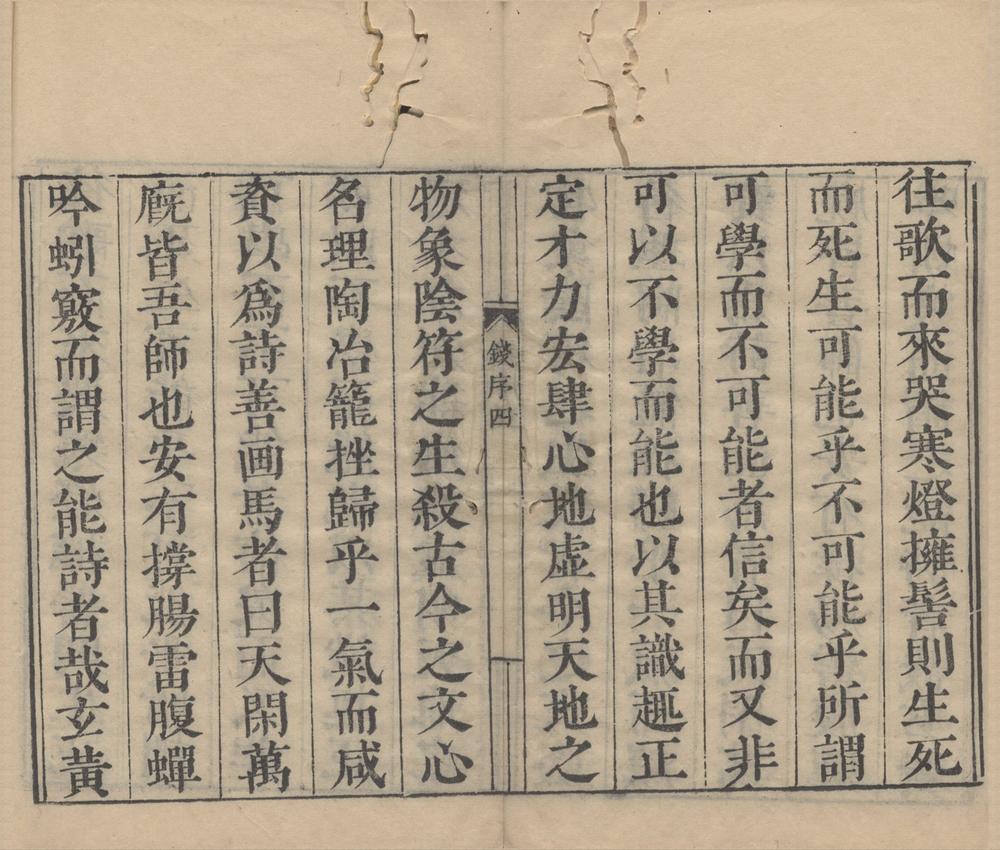 往歌而來哭寒燈擁髻則生死
而死生可能乎不可能乎所謂
可學而不可能者信矣而又非
可以不學而能也以其識趣正
定才力宏肆心地虛明天地之
錢序四
物象陰符之生殺古今之文心
名理陶冶籠挫歸乎一氣而咸
資以爲詩善画馬者曰天閑萬
廐皆吾師也安有撐腸雷腹蟬
吟蚓竅而謂之能詩者哉玄黃